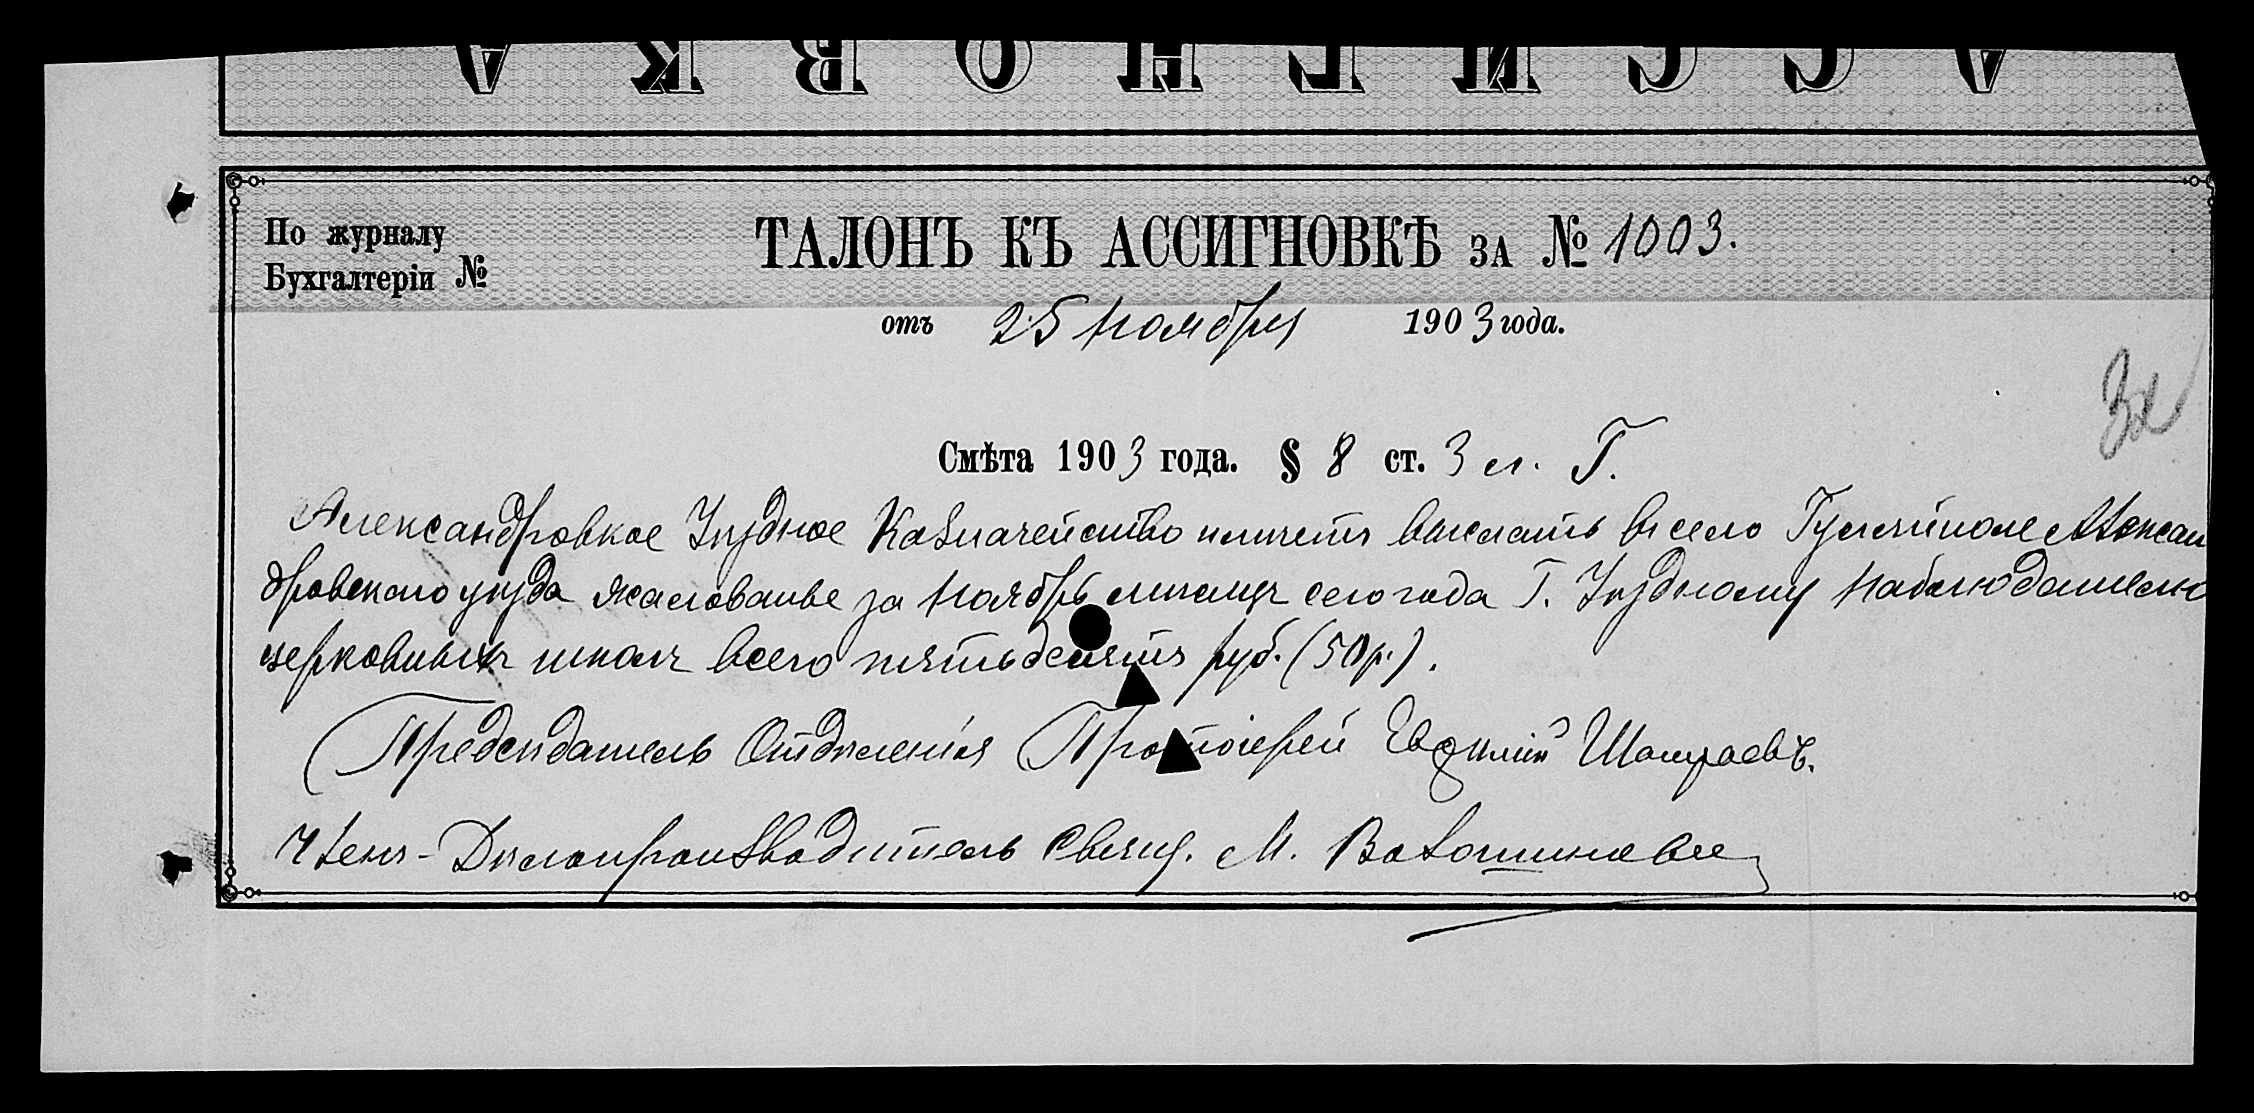 АССИГНОВКА
По журналу
Бухгалтеріи №
ТАЛОНЪ КЪ АССИГНОВКѢ ЗА № 1003.
отъ 25 Ноября 1903 года.
Смѣта 1903 года. § 8 ст. 3 л. Г.
Александровкое Уѣздное Казначейство имѣетъ выслать въ село Гуляйполе Алексан
дровскаго уѣзда жалованье за Ноябрь мѣсяцъ сего года Г. Уѣздному Наблюдателю
церковныхъ школъ всего пятьдесятъ руб. (50 р.).
Предсѣдатель Отдѣленія Протоіерей Евфимій
Членъ-Дѣлопроизводитель Свящ. М.